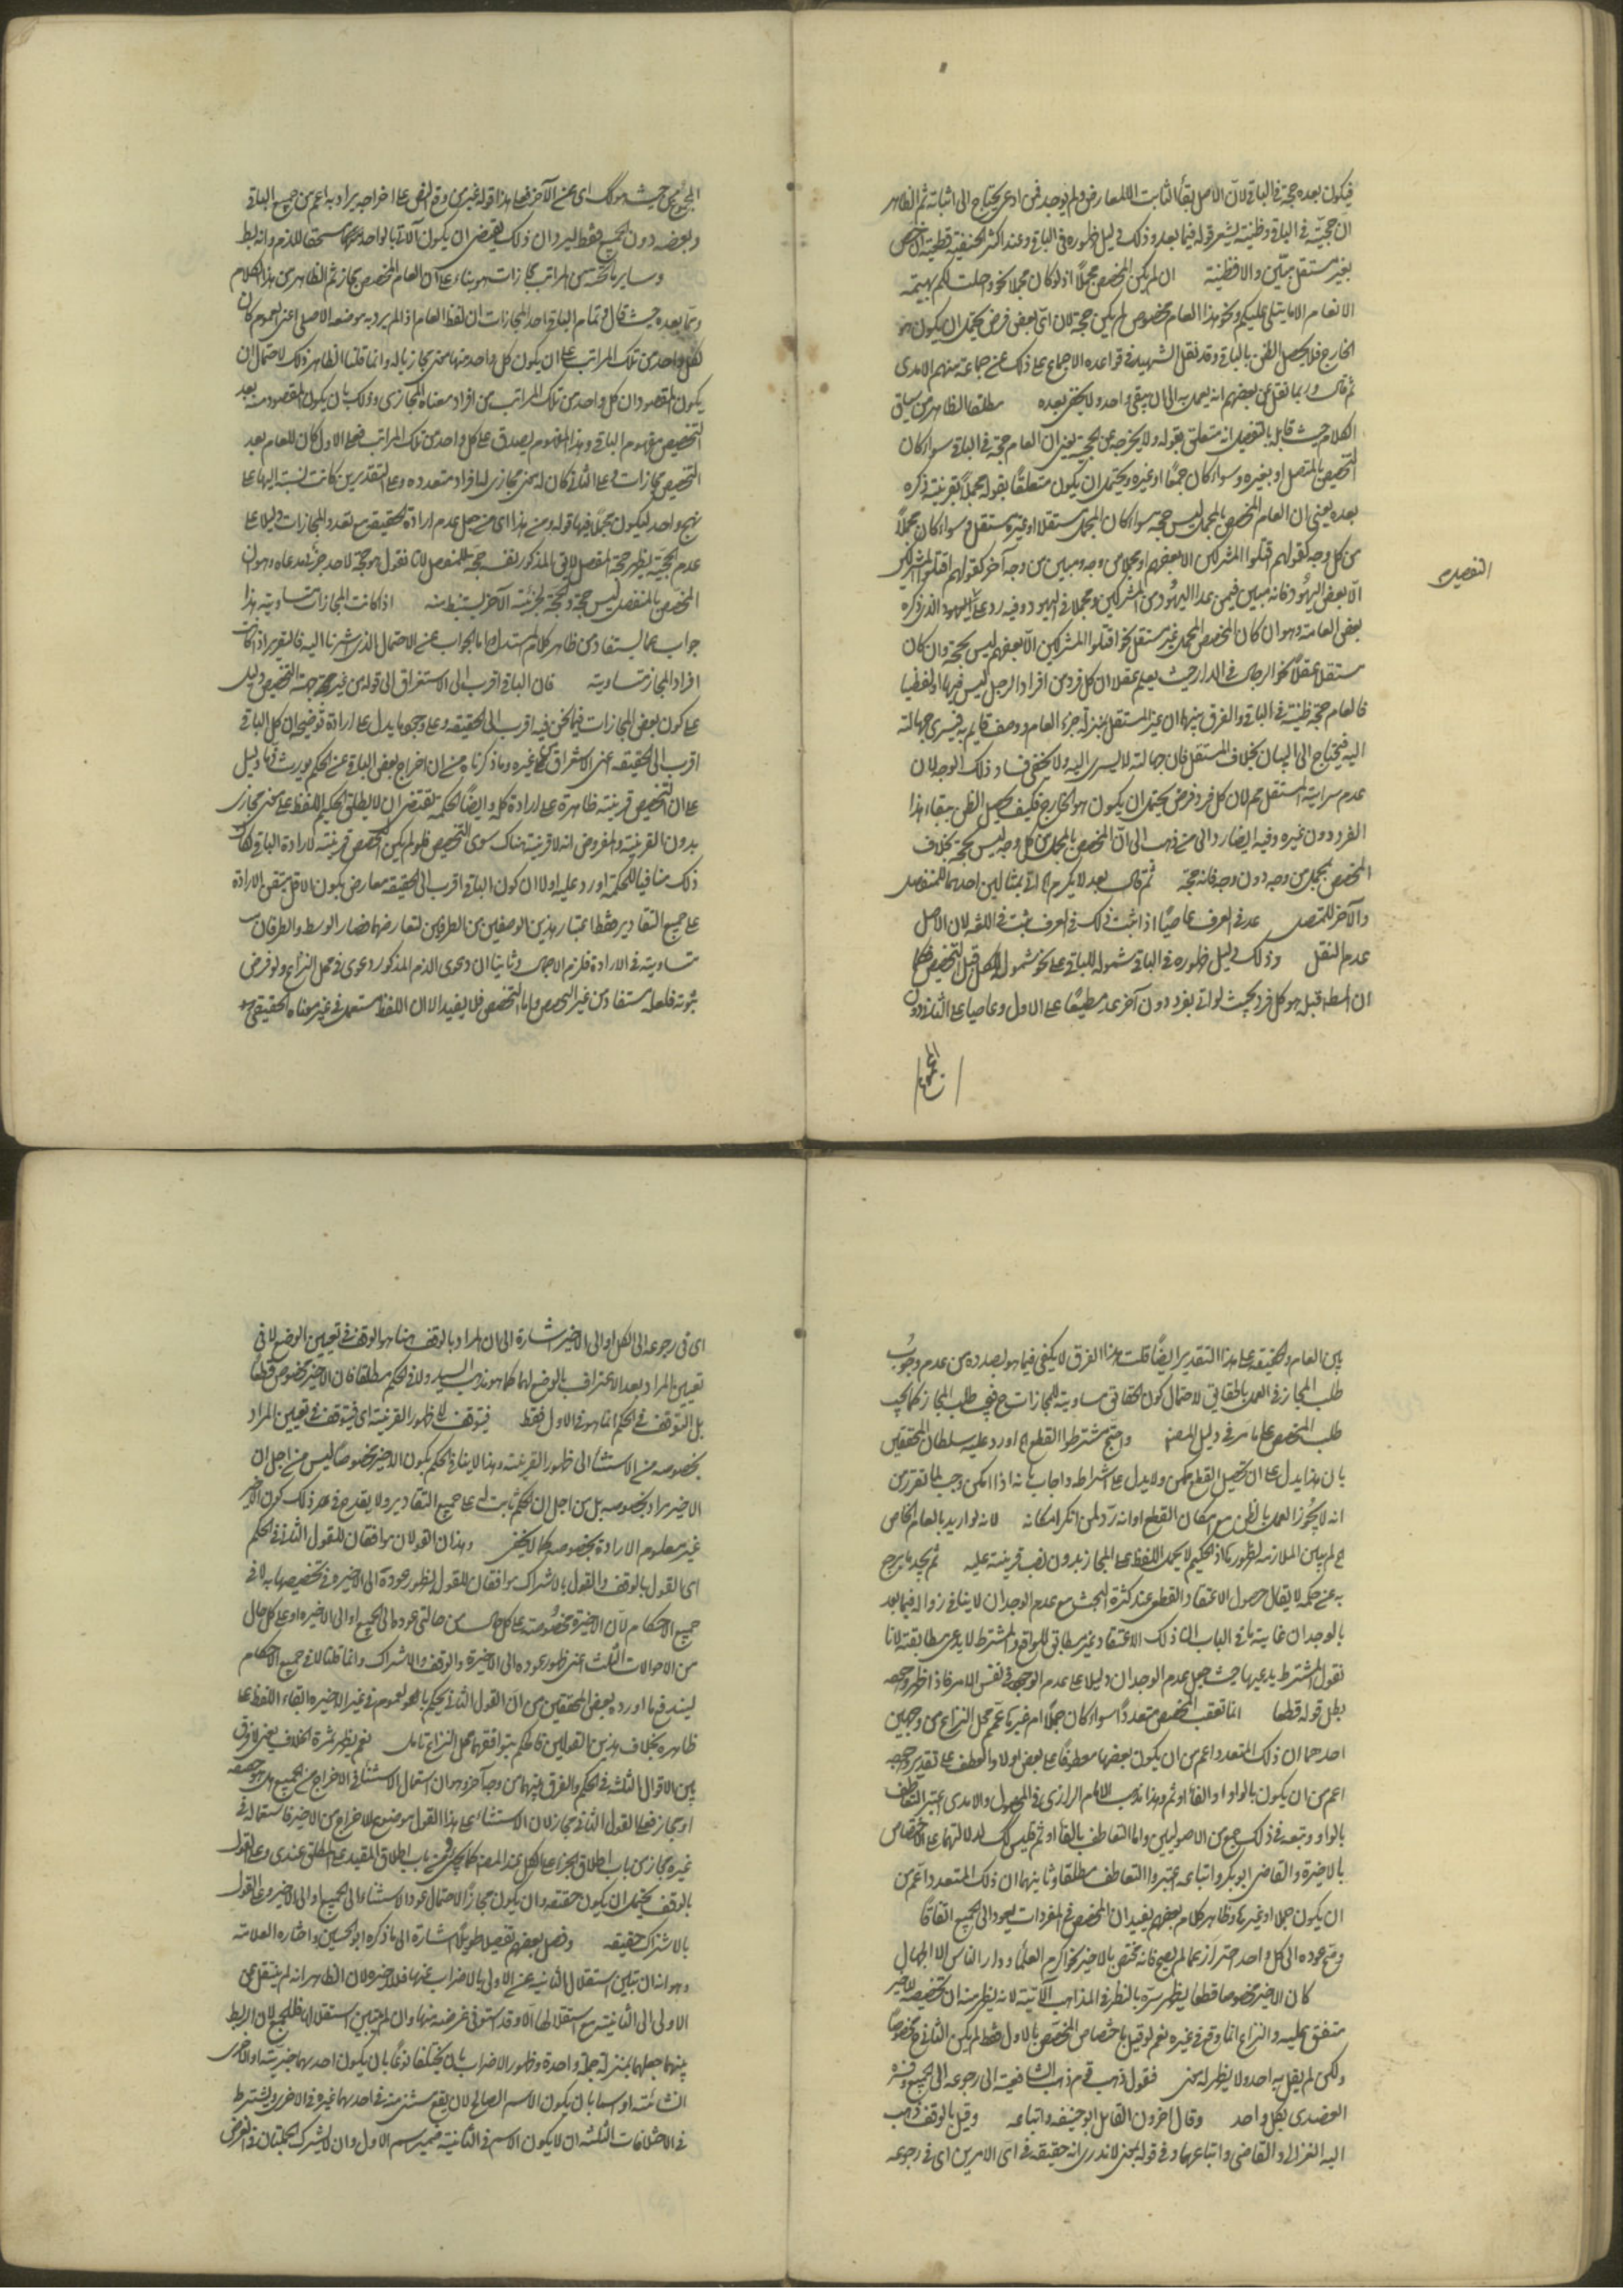 فيكون بعده حجة في الباقي لان الاصل بقاء الثابت الا لمعارض ولم يوجد فمن ادعى يحتاج الى اثباته ثم الظاهر
ان حجيته في الباقي ظنية يشعر قوله فيما بعد وذلك دليل ظهوره في الباقي وعند اكثر الحنفية قطعية ان خص
بغير مستقل مبين والا فظنية ان لم يكن المخصص مجملا اذ لو كان مجملا نحو احلت لكم بهيمة
الانعام الا ما يتلى عليكم ونحو هذا العام مخصوص لم يكن حجة لان اى بعض فرض يحتمل ان يكون هو
الخارج فلا يحصل الظن بالباقي وقد نقل الشهيد في قواعده الاجماع على ذلك عن جماعة منهم الآمدى
ثم قال وربما نقل عن بعضهم انه يعمل به الى ان يبقى واحد ولا يخفى بعده مطلقا الظاهر من سياق
الكلام حيث قابله بالتفصيل انه متعلق بقوله ولا يخرجه عن الحجية يعنى ان العام حجة في الباقي سواء كان
التخصيص بالمتصل او بغيره وسواء كان جمعا او غيره ويحتمل ان يكون متعلقا بقوله مجملا بقرينة ذكره
بعده يعنى ان العام المخصص بالمجمل ليس حجة سواء كان المجمل مستقلا او غير مستقل وسواء كان مجملا
من كل وجه كقولهم اقتلوا المشركين الا بعضهم او مجملا من وجه ومبين من وجه آخر كقولهم اقتلوا المشركين
الا بعض اليهود فانه مبين فيمن عدا اليهود من المشركين ومجملا في اليهود وفيه رد على اليهود الذى ذكره
بعض العامة وهو ان كان المخصص المجمل غير مستقل نحو اقتلوا المشركين الا بعضهم ليس بحجة وان كان
مستقلا عقلا نحو الرجال في الدار حيث يعلم عقلا ان كل فرد من افراد الرجل ليس فيها او لفظيا
فالعام حجة ظنية في الباقي والفرق بينهما ان غير المستقل بمنزلة جزء العام ووصف قايم به فيسرى جهالته
اليه فيحتاج الى البيان بخلاف المستقل فان جهالته لا يسرى اليه ولا يخفى فساد ذلك الوجه لان
عدم سراية المستقل مم لان كل فرد فرض يحتمل ان يكون هو الخارج فكيف يحصل الظن ببقاء هذا
الفرد دون غيره وفيه ايضا رد الى من ذهب الى ان المخصص بالمجمل من كل وجه ليس بحجة بخلاف
المخصص بمجمل من وجه دون وجه فانه حجة ثم قال بعد لا يكرم اتى بمثالين احدهما للمنفصل
والآخر للمتصل عد في العرف عاصيا اذا ثبت ذلك في العرف ثبت في اللغة لان الاصل
عدم النقل وذلك دليل ظهوره في الباقي شموله للباقي على نحو شموله للكل قبل التخصيص فكما
ان المط قبله هو كل فرد بحيث لو اتى بفرد دون آخر عد مطيعا على الاول وعاصيا على الثانى دون
التفصيل
المجموع من حيث هو كك اى عن الآخر فعلى هذا قوله غيرى وقع النص على اخراجه يراد به اعم من جميع الباقي
وبعضه دون الجميع فقط ليرد ان ذلك يقتضى ان يكون الآتى بالواحد منهما مستحقا للذم وانه بط
وساير ما تحته من المراتب مجازات هو بناء على ان العام المخصص مجاز ثم الظاهر من هذا الكلام
ومما بعده حيث قال في تمام الباقي احد المجازات ان لفظ العام اذا لم يرد به موضعه الاصلى اعنى العموم كان
لكل واحد من تلك المراتب على ان يكون كل واحد منها معنى مجازيا له وانما قلنا الظاهر ذلك لاحتمال ان
يكون المقصود ان كل واحد من تلك المراتب من افراد معناه المجازى وذلك بان يكون المقصود منه بعد
التخصيص مفهوم الباقي وهذا المفهوم يصدق على كل واحد من تلك المراتب فعلى الاول كان للعام بعد
التخصيص مجازات وعلى الثانى كان له معنى مجازى له افراد متعدده وعلى التقديرين كانت نسبته اليها على
نهج واحد ليكون مجملا فيها قوله ومن هذا اى من حمل عدم ارادة الحقيقة مع تعدد المجازات دليلا على
عدم الحجية يظهر حجة المفصل لا في المذكور نفسه حجة للمفصل لانا نقول هو حجة لاحد جزئى مدعاه وهو ان
المخصص بالمنفصل ليس حجة والحجة لجزئيه الآخر يستنبط منه اذا كانت المجازات متساوية هذا
جواب عما يستفاد من ظاهر كلام المستدل واما الجواب عن الاحتمال الذى اشرنا اليه فالتقرير اذا كانت
افراد المجاز متساوية فان الباقي اقرب الى الاستغراق الى قوله من غير جهة التخصيص دليل
على كون بعض المجازات فيما نحن فيه اقرب الى الحقيقة وعلى وجود ما يدل على ارادة توضيحه ان كل الباقي
اقرب الى الحقيقة اعنى الاستغراق من غيره وما ذكرناه من ان اخراج بعض الباقي عن الحكم يورث ذما دليل
على ان التخصيص قرينة ظاهرة على ارادة كله وايضا الحكمة تقتضى ان لا يطلق الحكيم اللفظ على معنى مجازى
بدون القرينة والمفروض انه لا قرينة هناك سوى التخصيص فلو لم يكن التخصيص قرينة لارادة الباقي لكان
ذلك منافيا للحكمة اورد عليه اولا ان كون الباقي اقرب الى الحقيقة معارض بكون الاقل متيقن الارادة
على جميع التقادير فسقط اعتبار هذين الوصفين من الطرفين لتعارضهما فصار الوسط والطرفان
متساوية في الارادة فلزم الاجمال وثانيا ان دعوى الذم المذكور دعوى في محل النزاع ولو فرض
ثبوته فلعله مستفاد من غير التخصيص واما التخصيص فلا يفيد الا ان اللفظ مستعمل في غير معناه الحقيقى
بين العام والحقيقة على هذا التقدير ايضا قلت هذا الفرق لا يكفى فيما هو بصدده من عدم وجوب
طلب المجاز في العمل بالحقايق لاحتمال كون الحقايق مساوية للمجازات ح فيجب طلب المجاز كما يجب
طلب المخصص على ما مر في دليل المصنف واحتج مشترطوا القطع الخ اورد عليه سلطان المحققين
بان هذا يدل على ان تحصيل القطع ممكن ولا يدل على اشتراطه واجاب بانه اذا امكن وجب لما تقرر من
انه لا يجوز العمل بالظن مع امكان القطع او انه رد لمن انكر امكانه لانه لو اريد بالعام الخاص
لم يبين الملازمة لظهورها اذ الحكيم لا يحمل اللفظ على المجاز بدون نصب قرينة عليه ثم يجد ما يرجح
به عن حكمه لا يقال حصول الاعتقاد القطعى عند كثرة البحث مع عدم الوجدان لا ينافى زواله فيما بعد
بالوجدان غاية ما في الباب ان ذلك الاعتقاد غير مطابق للواقع والمشترط لا يدعى مطابقته لانا
نقول المشترط يدعيها حيث جعل عدم الوجدان دليلا على عدم الوجود في نفس الامر فاذا ظهر وجوده
بطل قوله قطعا اذا تعقب المخصص متعددا سواء كان جملا ام غيرها عمم محل النزاع من وجهين
احدهما ان ذلك المتعدد اعم من ان يكون بعضها معطوفا على بعض او لا والعطف على تقدير وجوده
اعم من ان يكون بالواو او الفاء او ثم وهذا مذهب الامام الرازى في المحصول والآمدى اعتبر التعاطف
بالواو وتبعه في ذلك جمع من الاصوليين واما التعاطف بالفاء او ثم فليس كك لدلالتهما على الاختصاص
بالاخيرة والقاضى ابو بكر واتباعه اعتبروا التعاطف مطلقا وثانيهما ان ذلك المتعدد اعم من
ان يكون جملا او غيرها وظاهر كلام بعضهم يفيد ان المخصص في المفردات يعود الى الجميع اتفاقا
وصح عوده الى كل واحد احترازا عما لم يصح فانه مختص بالاخير نحو اكرم العلماء ودار الناس الا الجهال
كان الاخير مخصوصا قطعا يظهر سره بالنظر في المذاهب الآتية لانه يظهر منه ان تخصيص الاخير
متفق عليه والنزاع انما وقع في غيره نعم لو قيل باختصاص المخصص بالاول فقط لم يكن الثانى مخصوصا
ولكن لم يقل به احد ولا يظهر له معنى فقول ذهب قوم ذهب الشافعية الى رجوعه الى الجميع وفسره
العضدى بكل واحد وقال آخرون القائل ابو حنيفه واتباعه وقيل بالوقف ذهب
اليه الغزالى والقاضى واتباعهما وفي قوله بمعنى لا ندرى انه حقيقة في اى الامرين اى في رجوعه
اى في رجوعه الى الكل او الى الاخير اشارة الى ان المراد بالوقف هنا هو الوقف في تعيين الوضع لا في
تعيين المراد بعد الاعتراف بالوضع لهما كما هو مذهب السيد ولا في الحكم مطلقا فان الاخير مخصوص قطعا
بل التوقف في الحكم انما هو في الاول فقط فيتوقف الى ظهور القرينة اى فيتوقف في تعيين المراد
بخصوصه من الاستثناء الى ظهور القرينة وهذا لا ينافى الحكم بكون الاخير مخصوصا ليس من اجل ان
الاخير مراد بخصوصه بل من اجل ان الحكم ثابت له على جميع التقادير ولا يقدح في هذا ذلك كون الاخير
غير معلوم الارادة بخصوصه كما لا يخفى وهذان القولان موافقان للقول الثانى في الحكم
اى القول بالوقف والقول بالاشتراك موافقان للقول لظهور عوده الى الاخير في تخصيصها به لا في
جميع الاحكام لان الاخيرة مخصوصة على كل حال من حالتى عوده الى الجميع او الى الاخيره او على كل حال
من الاحوالات الثلث اعنى ظهور عوده الى الاخيرة والوقف والاشتراك وانما قلنا لا في جميع الاحكام
ليندفع ما اورده بعض المحققين من ان القول الثانى يحكم بالعموم في غير الاخيرة ابقاء اللفظ على
ظاهره بخلاف هذين القولين فالحكم بتوافقهما محل النزاع تامل نعم يظهر ثمرة الخلاف يعنى لا فرق
بين الاقوال الثلثة في الحكم والفرق بينهما من وجه آخر وهو ان استعمال الاستثناء في الاخراج من الجميع هل هو حقيقة
او مجاز فعلى القول الثانى مجاز لان الاستثناء على هذا القول موضوع للاخراج من الاخيرة فاستعماله في
غيره مجاز من باب اطلاق الجزء على الكل عند المصنف كما يجئ وفي باب اطلاق المقيد على المطلق عندى وعلى القول
بالوقف يحتمل ان يكون حقيقة وان يكون مجازا لاحتمال عود الاستثناء الى الجميع او الى الاخير وعلى القول
بالاشتراك حقيقة وفصل بعضهم تفصيلا طويلا اشارة الى ما ذكره ابو الحسين واختاره العلامة
وهو انه ان تبين استقلال الثانية عن الاولى بالاضراب عنها فللاخيرة لان الظاهر انه لم ينتقل عن
الاولى الى الثانية مع استقلالها الا وقد استوفى غرضه منها وان لم يتبين استقلالها فللجميع لان الربط
بينهما جعلهما بمنزلة جملة واحدة وظهور الاضراب بان يختلفا نوعا بان يكون احدهما خبرية والاخرى
انشائية او اسما بان يكون الاسم الصالح لان يقع مستثنى منه في احدهما غيره في الاخرى ويشترط
في الاختلافات الثلثة ان لا يكون الاسم في الثانية ضمير اسم الاول وان لا يشترك الجملتان في الغرض